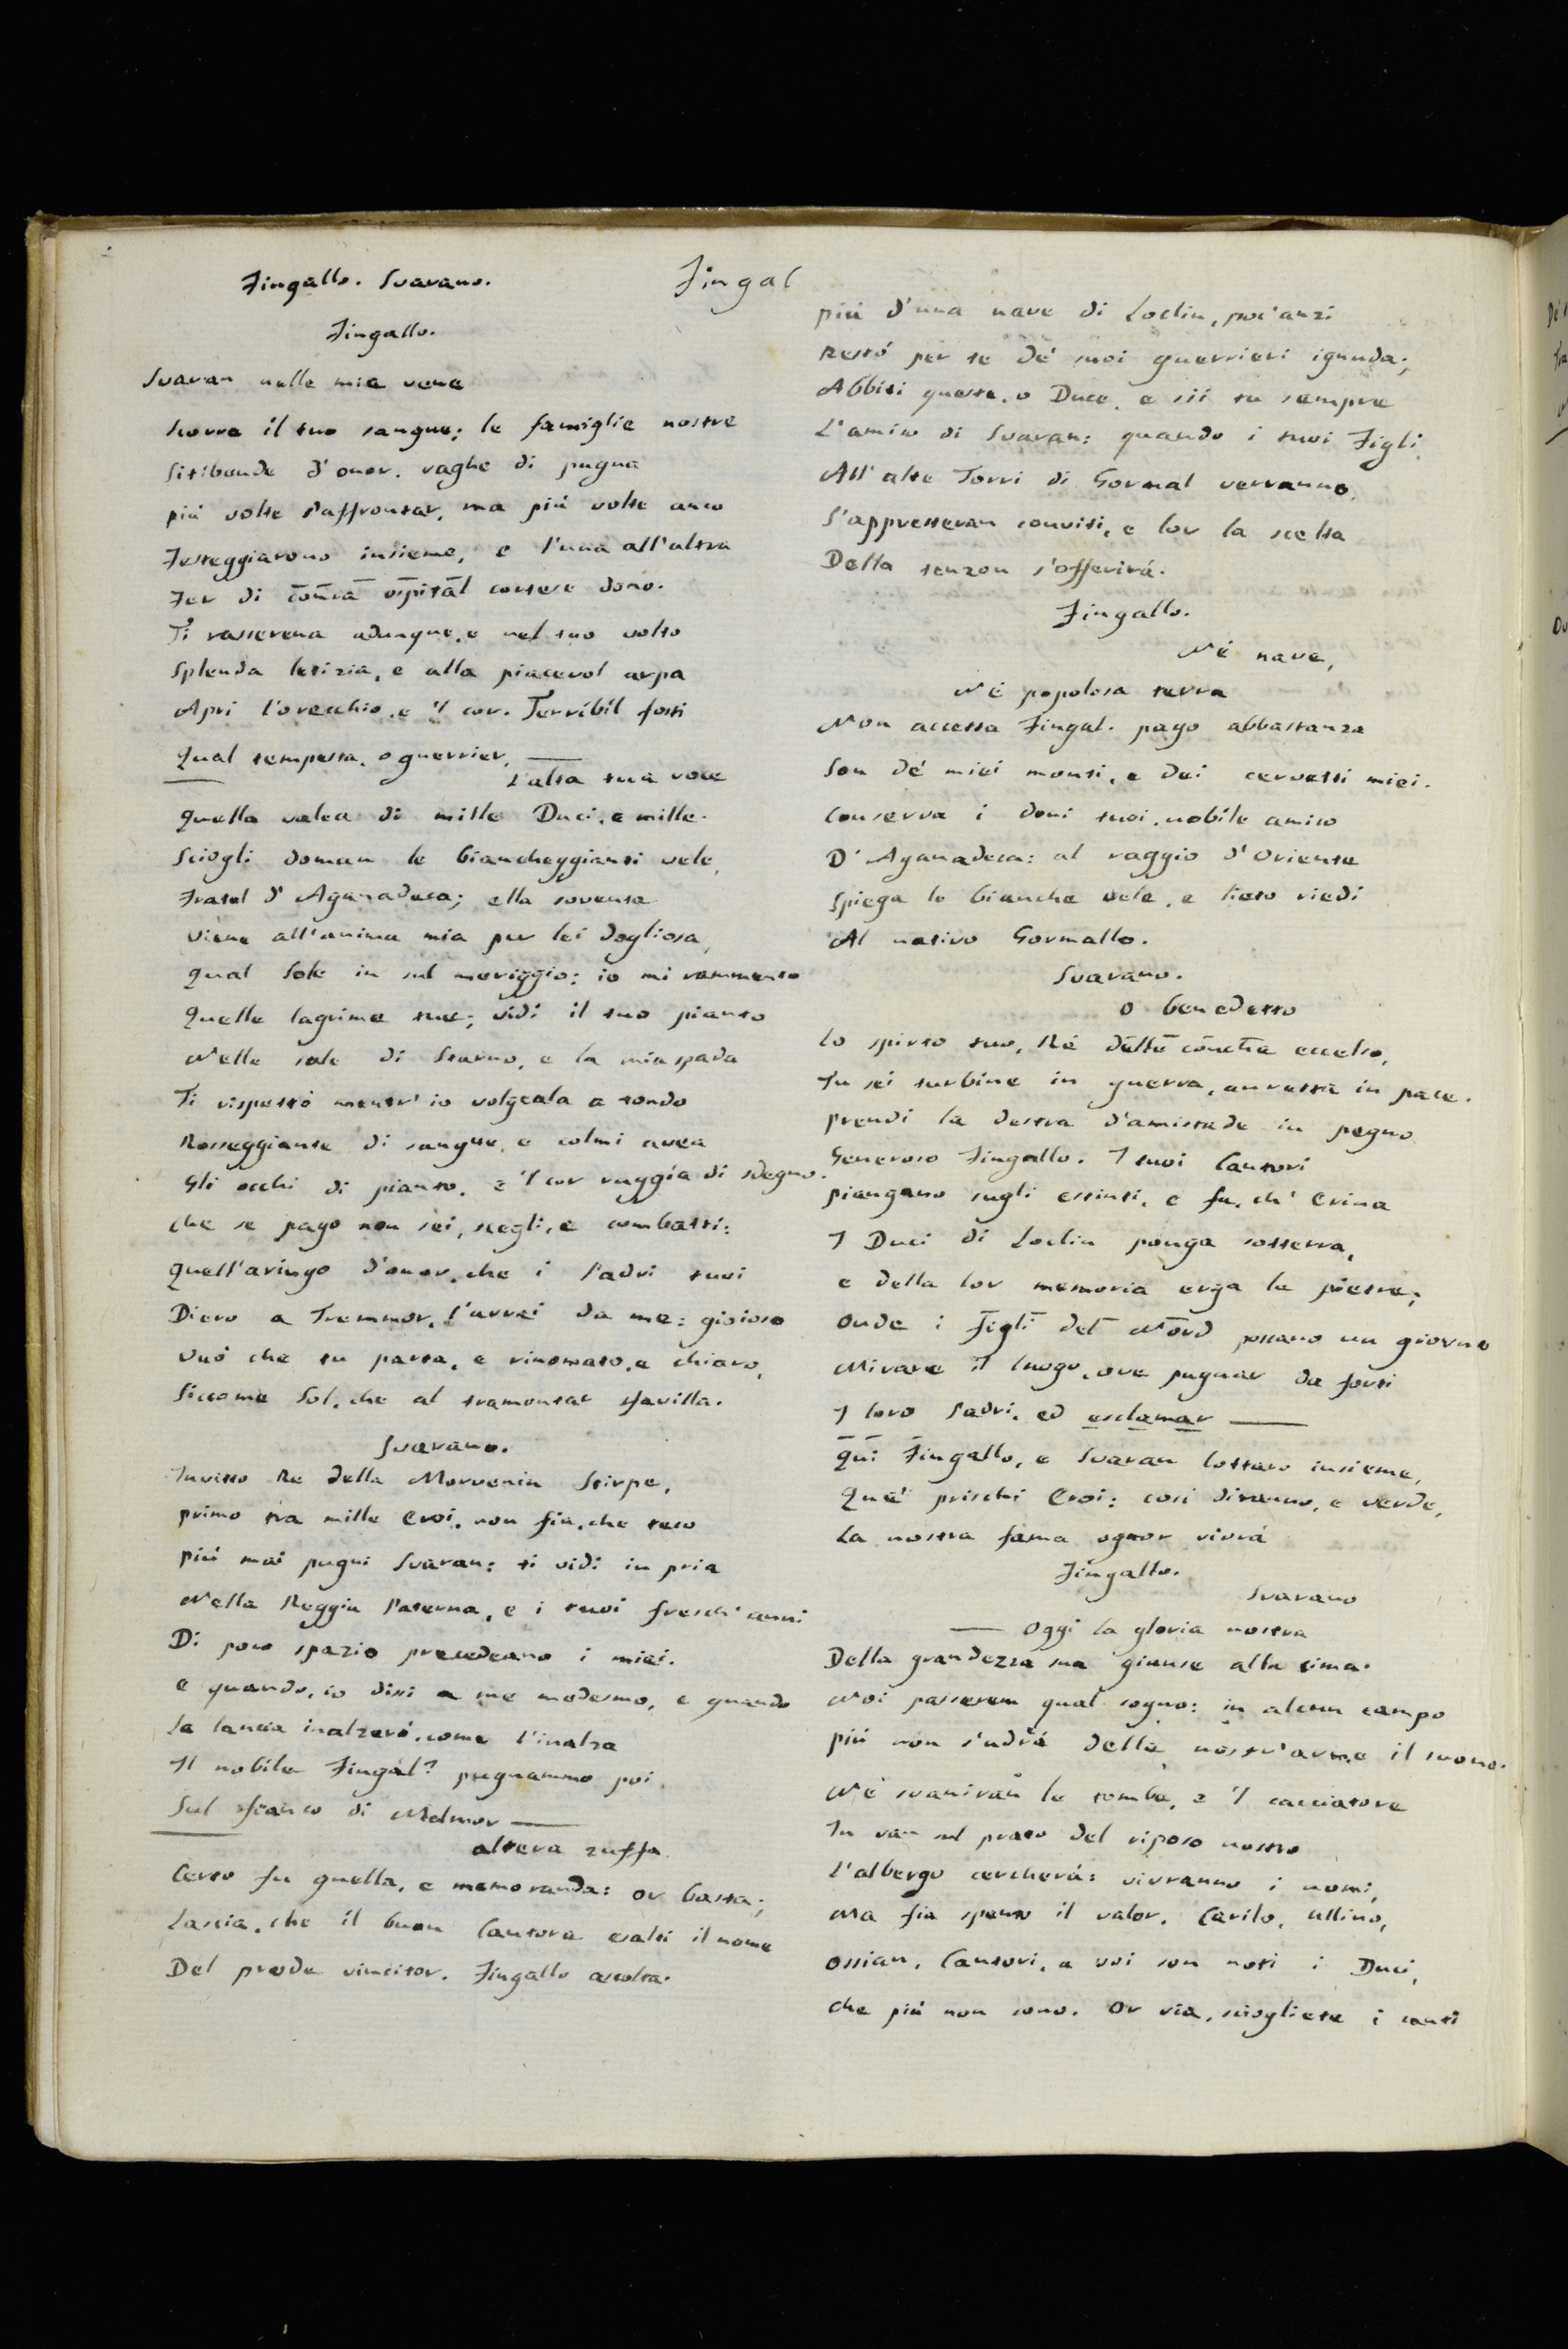 Fingallo. Svarano.
Fingal
Fingallo.
Svaran nelle mie vene
Scorre il tuo sangue; le famiglie nostre
Sitibonde d'onor, vaghe di pugna
più volte s'affrontar, ma più volte anco
Festeggiarono insieme, e l'una all'altra
Fer di conca ospital cortese dono.
Ti rasserena adunque, e nel tuo volto
Splenda letizia, e alla piacevol arpa
Apri l'orecchio, e 'l cor. Terribil fosti
Qual tempesta, o guerrier,
L'alta tua voce
Quella valea di mille Duci, e mille.
Sciogli doman le biancheggianti vele,
Fratel d'Aganadeca; ella sovente
Viene all'anima mia per lei dogliosa,
Qual Sole in sul meriggio: io mi rammento
Quelle lagrime tue; vidi il tuo pianto
Nelle sale di Starno, e la mia spada
Ti rispettò mentr'io volgeala a tondo
Rosseggiante di sangue, e colmi avea
Gli occhi di pianto, e 'l cor ruggìa di sdegno.
Che se pago non sei, scegli, e combatti:
Quell'aringo d'onor, che i Padri tuoi
Diero a Tremmor, l'avrai da me: gioioso
Vuò che tu parta, e rinomato, e chiaro,
Siccome Sol, che al tramontar sfavilla.
Svarano.
Invitto Re della Morvenia Stirpe,
primo tra mille Eroi, non fia, che teco
più mai pugni Svaran: ti vidi in pria
Nella Reggia Paterna, e i tuoi fresch'anni
Di poco spazio precedeano i miei.
e quando, io dissi a me medesmo, e quando
La lancia inalzerò, come l'inalza
Il nobile Fingal? pugnammo poi
Sul fianco di Malmor
altera zuffa
Certo fu quella, e memoranda: or basta;
Lascia, che il buon Cantore esalti il nome
Del prode vincitor. Fingallo ascolta:
più d'una nave di Loclin, poc'anzi
Restò per te de' suoi guerrieri ignuda;
Abbiti queste, o Duce, e sii tu sempre
L'amico di Svaran: quando i tuoi Figli
All'alte Torri di Gormal verranno,
S'appresteran conviti, e lor la scelta
Della tenzon s'offerirà.
Fingallo.
Nè nave,
Nè popolosa terra
Non accetta Fingal. pago abbastanza
Son de' miei monti, e dei cervetti miei.
Conserva i doni tuoi, nobile amico
D'Aganadeca: al raggio d'Oriente
Spiega le bianche vele, e lieto riedi
Al nativo Gormallo.
Svarano.
O benedetto
Lo spirto tuo, Rè delle conche eccelso,
Tu sei turbine in guerra, auretta in pace.
prendi la destra d'amistade in pegno
Generoso Fingallo. I tuoi Cantori
piangano sugli estinti, e fa, ch'Erina
I Duci di Loclin ponga sotterra,
e della lor memoria erga le pietre;
Onde i Figli del Nord possano un giorno
Mirare il luogo, ove pugnar da forti
I loro Padri, ed esclamar
Quì Fingallo, e Svaran lottaro insieme,
Que' prischi Eroi: così diranno, e verde,
La nostra fama ognor vivrà
Fingallo.
Svarano
Oggi la gloria nostra
Della grandezza sua giunse alla cima.
Noi passerem qual sogno: in alcun campo
più non s'udrà delle nostr'arme il suono.
Nè svaniran le tombe, e 'l cacciatore
In van sul prato del riposo nostro
L'albergo cercherà: vivranno i nomi,
Ma fia spento il valor. Carilo, Ullino,
Ossian, Cantori, a voi son noti i Duci,
che più non sono. Or via, sciogliete i canti